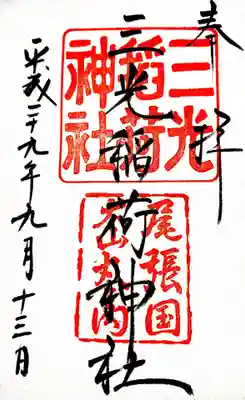 奉拝
三光稲荷神社
三光稲荷神社
尾張国犬山丸の内
平成二十九年九月十三日